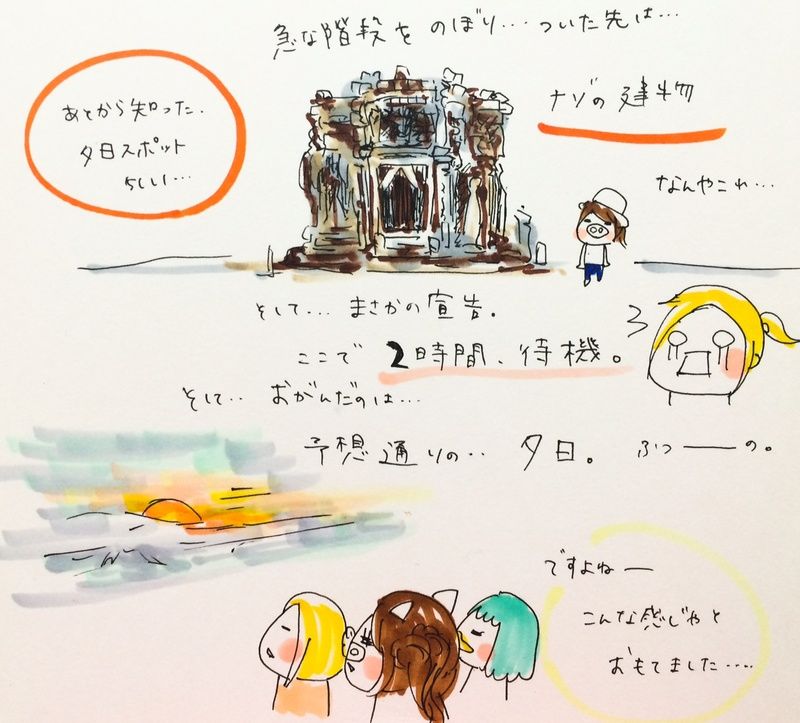 急な階段を のぼり… ついた先は…
あとから知った、
夕日スポット
らしい…
ナゾの 建物
なんやこれ…
そして… まさかの宣告。
ここで 2時間、待機。
そして… おがんだのは…
予想通りの… 夕日。 ふつ――の。
ですよねー
こんな感じやと
おもてました…..